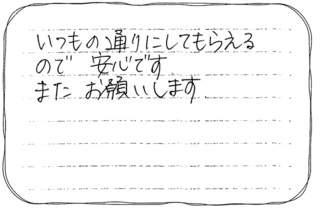 いつもの通りにしてもらえる
ので 安心です
また お願いします